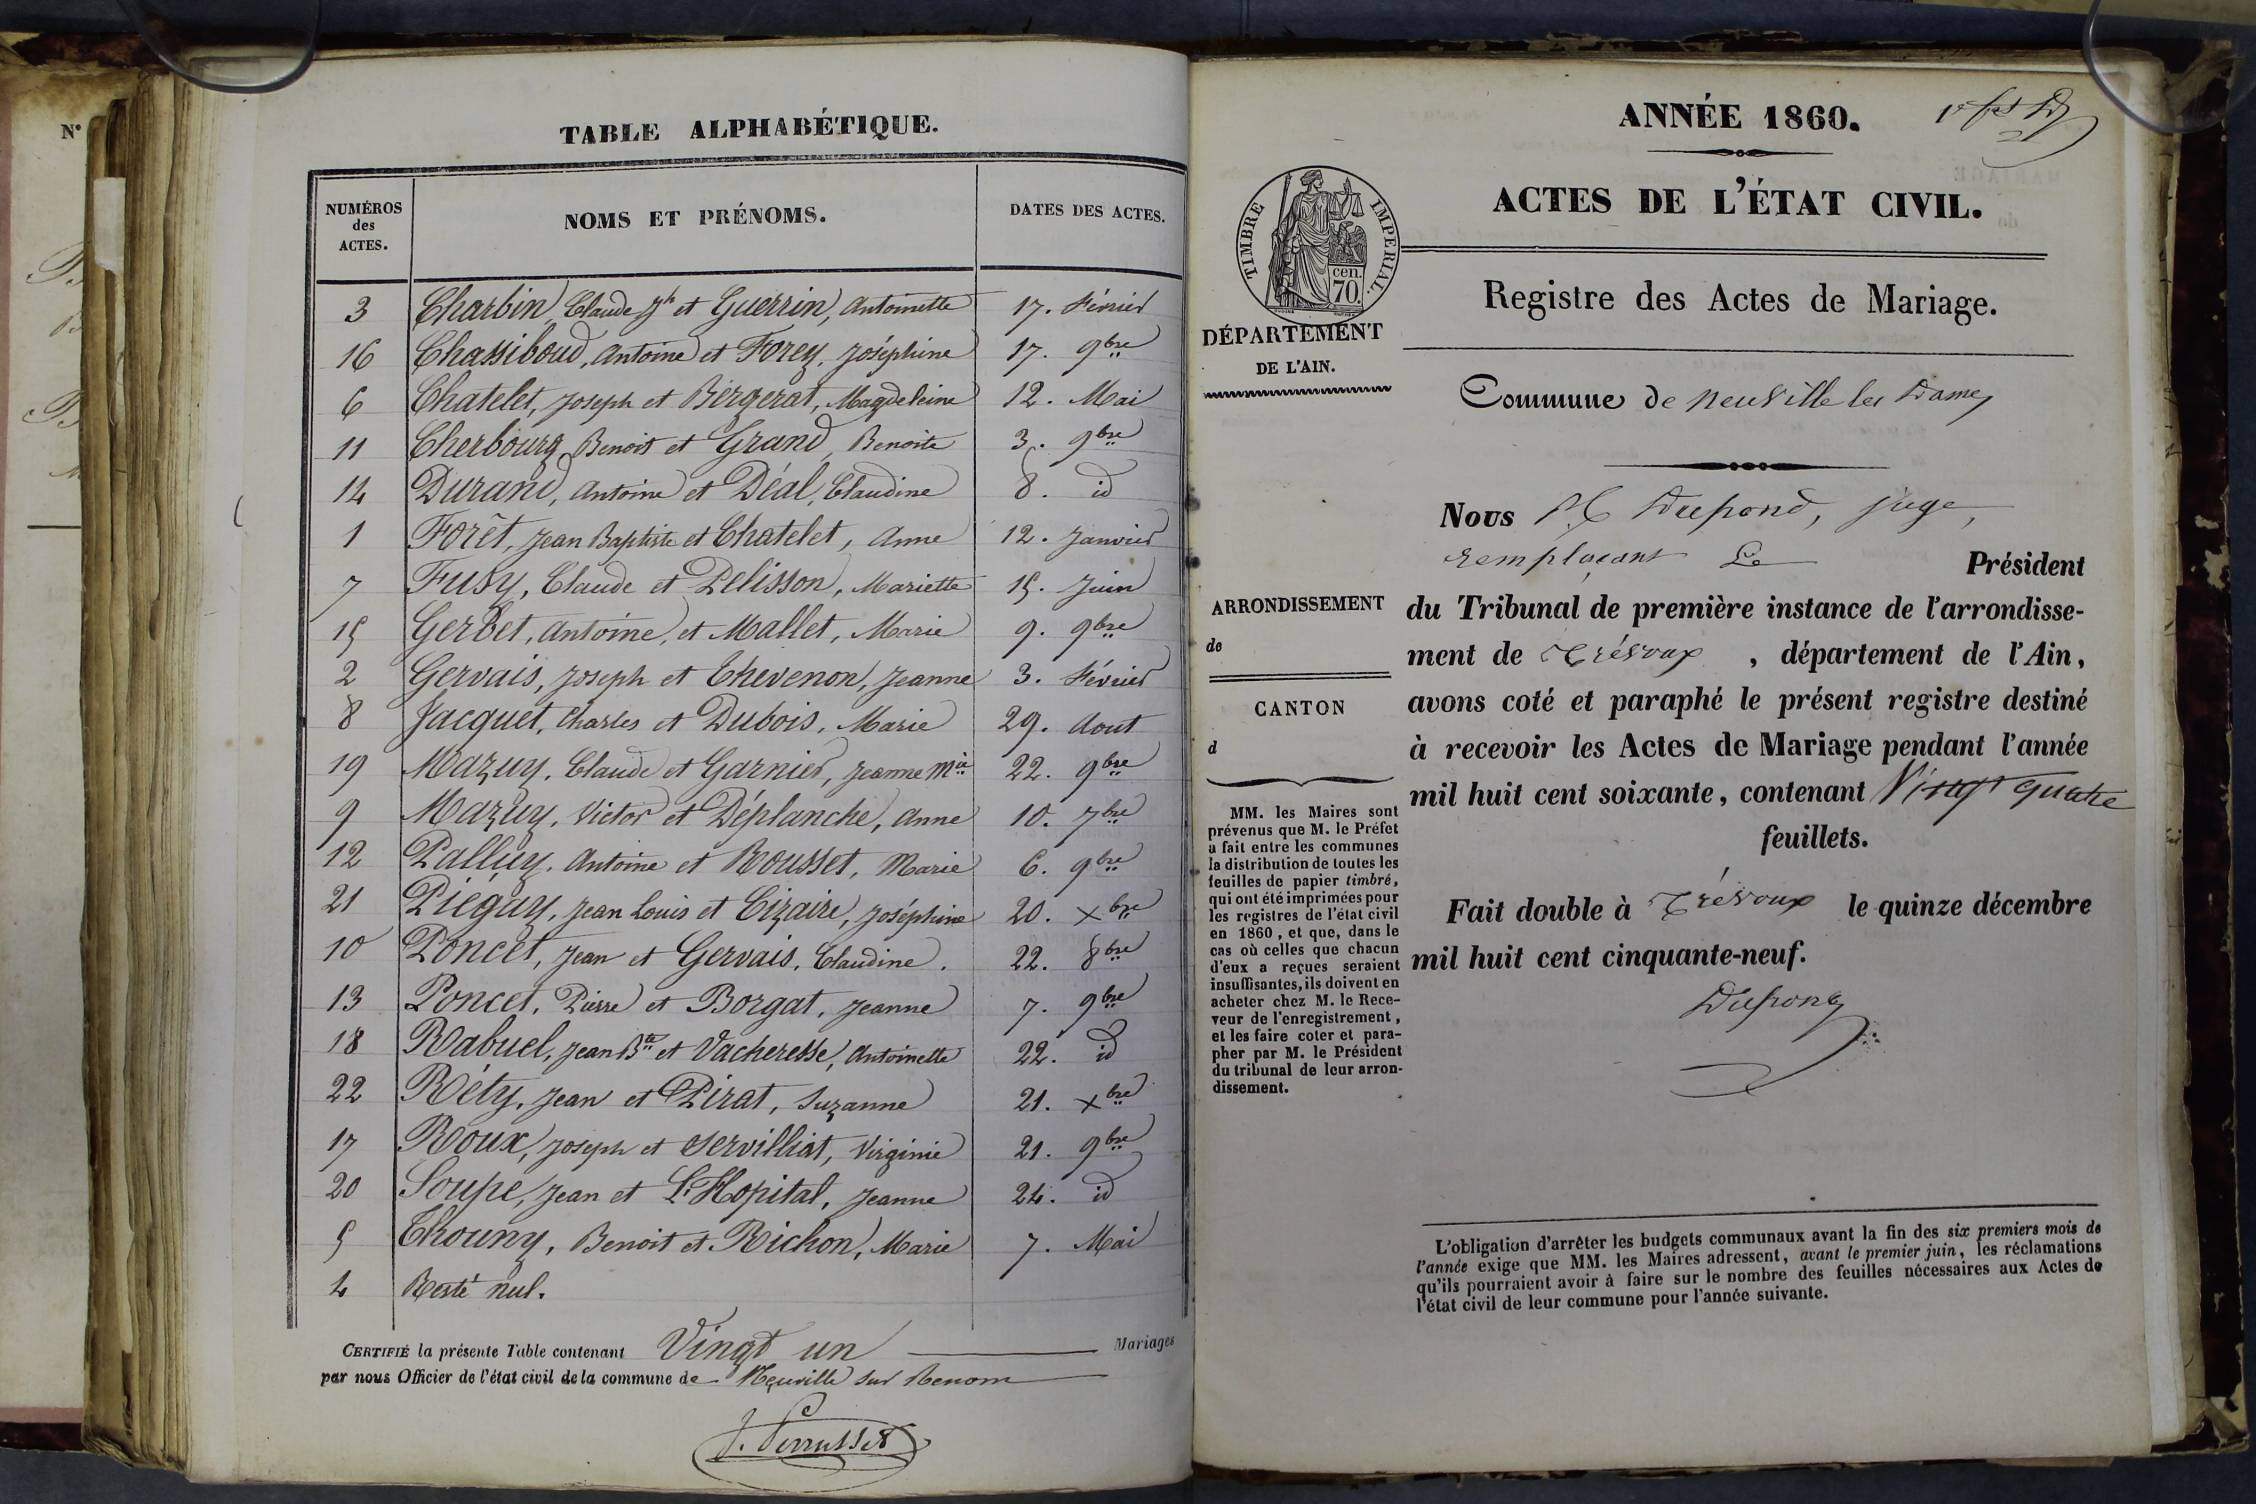 N°
TABLE ALPHABÉTIQUE.
NUMÉROS des ACTES. NOMS ET PRÉNOMS. DATES DES ACTES.
3 Charbin, Claude Jh et Guerrin, Antoinette 17. Février
16 Chassiboud, Antoine et Forey, Joséphine 17. 9bre
6 Chatelet, Joseph et Bergerat, Magdeleine 12. Mai
11 Cherbourg, Benoit et Grand, Benoite 3. 9bre
14 Durand, Antoine et Déal, Claudine 8. id
1 Forêt, Jean Baptiste et Chatelet, Anne 12. Janvier
7 Fusy, Claude et Pelisson, Mariette 15. Juin
15 Gerbet, Antoine, et Mallet, Marie 9. 9bre
2 Gervais, Joseph et Thevenon, Jeanne 3. Février
8 Jacquet, Charles et Dubois, Marie 29. Aout
19 Mazuy, Claude et Garnier, Jeanne Mie 22. 9bre
9 Mazuy, Victor et Déplanche, Anne 10. 7bre
12 Palluy, Antoine et Rousset, Marie 6. 9bre
21 Piégay, Jean Louis et Cizaire, Joséphine 20. Xbre
10 Poncet, Jean et Gervais, Claudine. 22. 8bre
13 Poncet, Pierre et Borgat, Jeanne 7. 9bre
18 Rabuel, Jean Bte et Vacheresse, Antoinette 22. id
22 Réty, Jean et Pirat, Suzanne 21. Xbre
17 Roux, Joseph et Servilliat, Virginie 21. 9bre
20 Soupe, Jean et L'Hopital, Jeanne 24. id
5 Thouny, Benoit et Richon, Marie 7. Mai
4 Resté nul.
CERTIFIÉ la présente Table contenant Vingt un Mariages
par nous Officier de l'état civil de la commune de Neuville sur Renom
J. Perrusset
ANNÉE 1860.
ACTES DE L'ÉTAT CIVIL.
TIMBRE IMPERIAL.
cen.
70.
Registre des Actes de Mariage.
DÉPARTEMENT
DE L'AIN.
Commune de Neuville les Dames
Nous Dupond, juge,
remplaçant Le Président
ARRONDISSEMENT
de
du Tribunal de première instance de l'arrondisse-
ment de Trévoux, département de l'Ain,
avons coté et paraphé le présent registre destiné
à recevoir les Actes de Mariage pendant l'année
mil huit cent soixante, contenant Vingt quatre
feuillets.
Fait double à Trévoux le quinze décembre
mil huit cent cinquante-neuf.
Dupond
CANTON
d
MM. les Maires sont
prévenus que M. le Préfet
a fait entre les communes
la distribution de toutes les
feuilles de papier timbré,
qui ont été imprimées pour
les registres de l'état civil
en 1860, et que, dans le
cas où celles que chacun
d'eux a reçues seraient
insuffisantes, ils doivent en
acheter chez M. le Rece-
veur de l'enregistrement,
et les faire coter et para-
pher par M. le Président
du tribunal de leur arron-
dissement.
L'obligation d'arrêter les budgets communaux avant la fin des six premiers mois de
l'année exige que MM. les Maires adressent, avant le premier juin, les réclamations
qu'ils pourraient avoir à faire sur le nombre des feuilles nécessaires aux Actes de
l'état civil de leur commune pour l'année suivante.